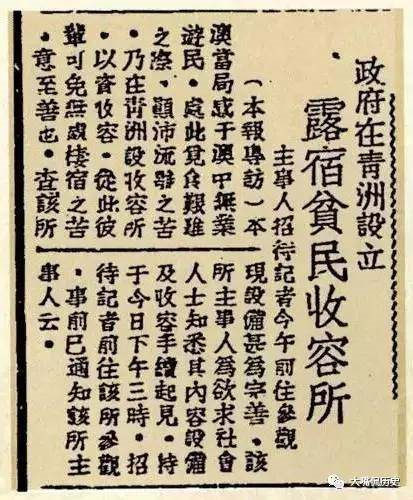 政府在青洲設立
露宿貧民收容所
主事人招待記者今午前往參觀
（本報專訪）本
澳當局感于澳中無業
遊民·處此覓食艱難
之際·顛沛流離之苦
·乃在青洲設收容所
·以資收容·從此彼
輩可免無處棲宿之苦
·意至善也·查該所
現設備甚為完善·該
所主事人為欲求社會
人士知悉其內容設備
及收容手續起見·特
于今日下午三時·招
待記者前往該所參觀
·事前已通知該所主
事人云·
大嘴侃历史